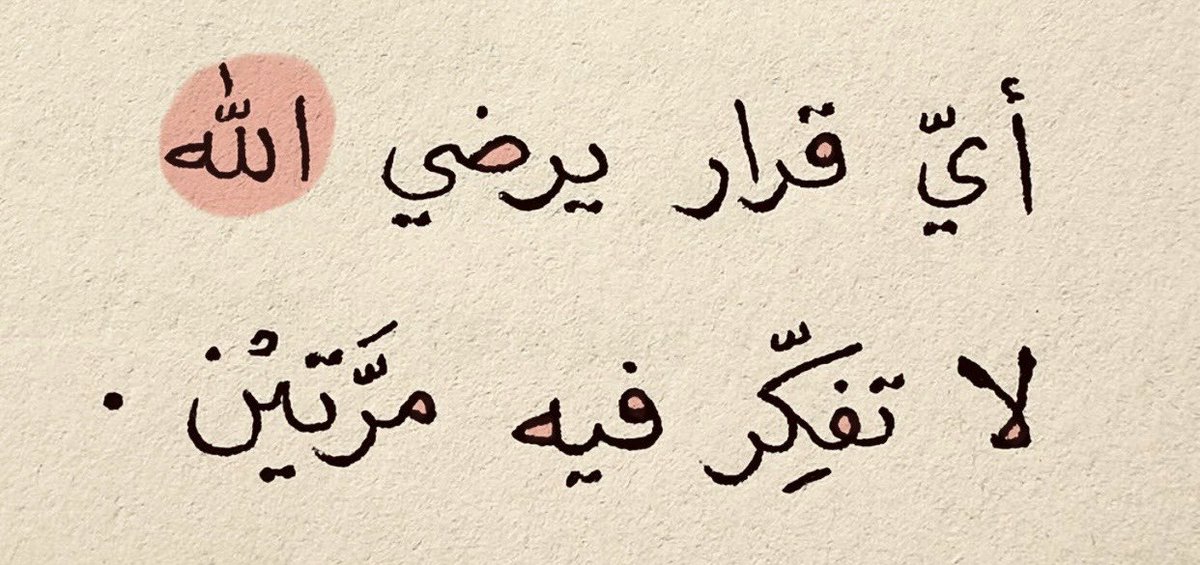 أيّ قرار يرضي الله
لا تفكِّر فيه مرَّتيْن .